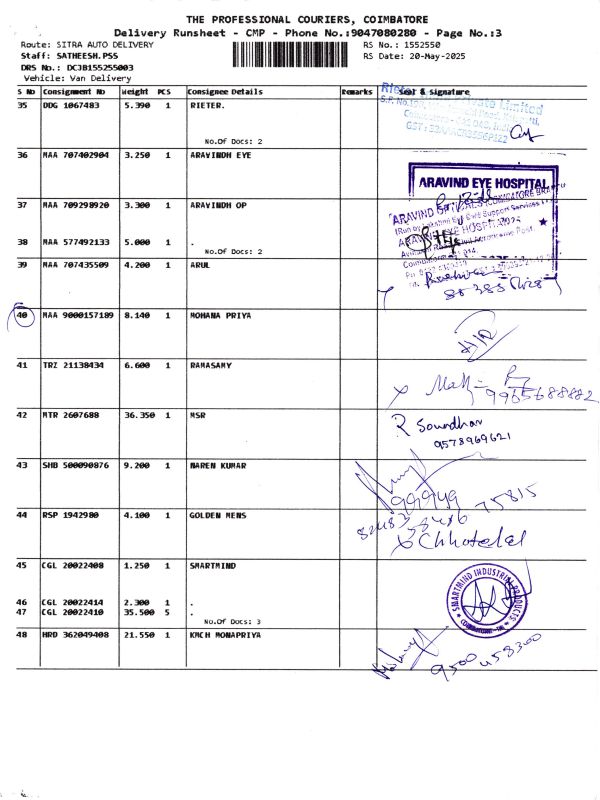 THE PROFESSIONAL COURIERS, COIMBATORE
Delivery Runsheet - CMP - Phone No.:9047080280 - Page No.:3
Route: SITRA AUTO DELIVERY
RS No.: 1552550
Staff: SATHEESH.PSS
RS Date: 20-May-2025
DRS No.: DCJB155255003
Vehicle: Van Delivery
S No Consignment No Weight PCS Consignee Details Remarks Seal & signature
35 DDG 1067483 5.390 1 RIETER.
No.Of Docs: 2
36 MAA 707402904 3.250 1 ARAVINDH EYE
ARAVIND EYE HOSPITAL
37 MAA 709298920 3.300 1 ARAVINDH OP
38 MAA 577492133 5.000 1 .
No.Of Docs: 2
39 MAA 707435509 4.200 1 ARUL
40 MAA 9000157189 8.140 1 MOHANA PRIYA
41 TRZ 21138434 6.600 1 RAMASAMY
9965688882
42 MTR 2607688 36.350 1 MSR
R Soundhar
9578969621
43 SHB 500090876 9.200 1 NAREN KUMAR
99949 75815
44 RSP 1942980 4.100 1 GOLDEN MENS
45 CGL 20022408 1.250 1 SMARTMIND
SMARTMIND INDUSTRIAL PRODUCTS
46 CGL 20022414 2.300 1 .
47 CGL 20022410 35.500 5 .
No.Of Docs: 3
48 HRD 362049408 21.550 1 KMCH MONAPRIYA
9500458300